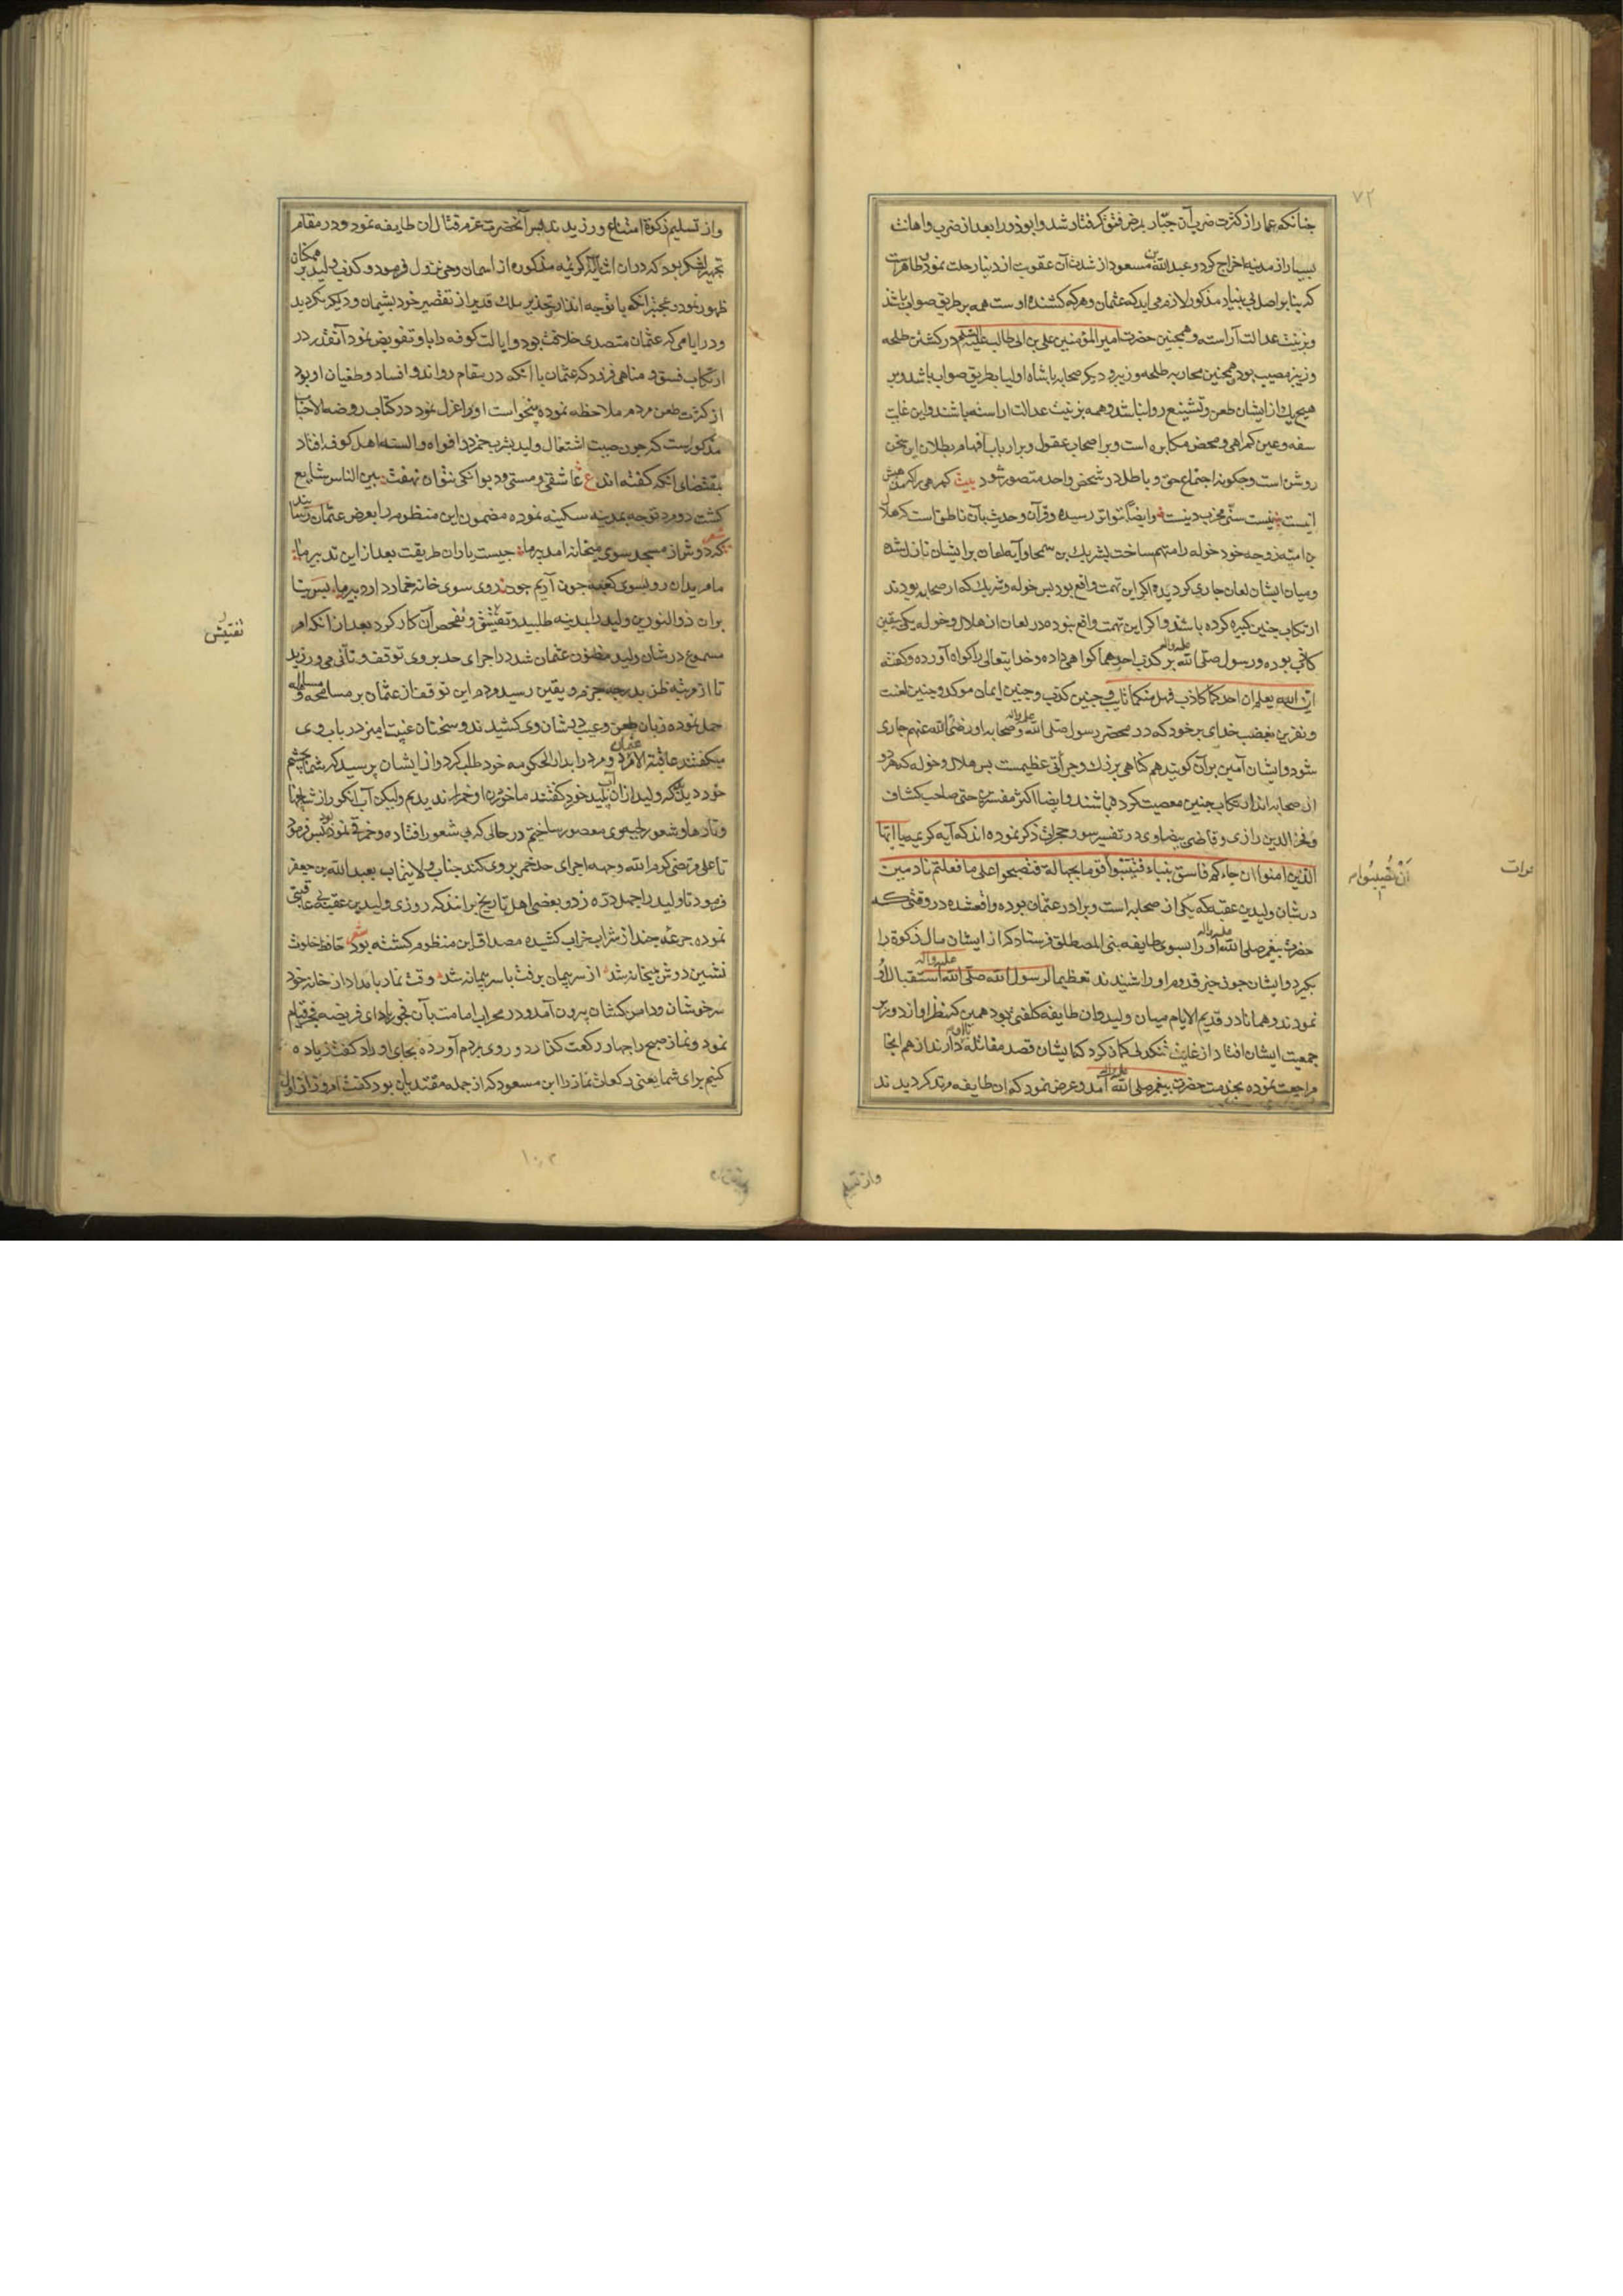 ۷۲
چنانکه عمار از کثرت ضرب آن جبار بمرض فتق گرفتار شد و ابوذر را بعد از ضرب و اهانت
بسیار از مدینه اخراج کرد و عبدالله بن مسعود از شدت آن عقوبت از دنیا رحلت نمود
که بنا بر اصل بی بنیاد مذکور لازم می اید که عثمان و هرکه کشنده اوست همه بر طریق صواب باشد
و بزینت عدالت آراسته و همچنین حضرت امیرالمؤمنین علی بن ابی طالب علیه السلم در کشتن طلحه
و زبیر مصیب بود همچنین محاربه طلحه و زبیر و دیگر صحابه با شاه اولیا بطریق صواب باشد و بر
هیچیک از ایشان طعن و تشنیع روا نباشد و همه بزینت عدالت اراسته باشند و این غایت
سفه و عین گمراهی و محض مکابره است و بر اصحاب عقول و بر ارباب افهام بطلان این سخن
روشن است و چگونه اجتماع حق و باطل در شخص واحد متصور شود بیت گمرهی را که مذهبش
اینست نیست سنی مخرب دینست و ایضا بتواتر رسیده و قرآن و حدیث بآن ناطق است که هلال
بن امیه زوجه خود خوله را متهم ساخت بشریک بن سمحا و آیه لعان بر ایشان نازل شده
و میان ایشان لعان جاری گردیده و اگر این تهمت واقع بود پس خوله و شریک که از صحابه بودند
ارتکاب چنین کبیره کرده باشند و اگر این تهمت واقع نبوده در لعان از هلال و خوله یکی بیقین
کاذب بوده و رسول صلی الله علیه واله بر کذب احدهما گواهی داده و خدایتعالی را گواه آورده و گفته
ان الله یعلم ان احدکما کاذب فهل منکما تایب و چنین کذب و چنین ایمان موکد و چنین لعنت
و نفرین بغضب خدای بر خود که در محضر رسول صلی الله علیه واله و صحابه او رضی الله عنهم جاری
شود و ایشان آمین بر آن گویند هم گناهی بزرک و جرأتی عظیمست پس هلال و خوله که هر دو
از صحابه اند ارتکاب چنین معصیت کرده باشند و ایضا اکثر مفسرین حتی صاحب کشاف
و فخر الدین رازی و قاضی بیضاوی در تفسیر سوره حجرات ذکر نموده اند که آیه کریمه یا ایها
الذین امنوا ان جاءکم فاسق بنباء فتبینوا قوما بجهالة فتصبحوا علی ما فعلتم نادمین
أن تصیبوا
در شان ولید بن عقبه که یکی از صحابه است و برادر عثمان بوده واقع شده در وقتی که
حضرت پیغمبر صلی الله علیه واله او را بسوی طایفه بنی المصطلق فرستاد که از ایشان مال زکوة را
بگیرد و ایشان چون خبر قدوم او را شنیدند تعظیما لرسول الله صلی الله علیه واله استقبال او
نمودند و همانا در قدیم الایام میان ولید و ان طایفه کلفتی بود همین که نظر او از دور بر
جمعیت ایشان افتاد از غایت تنگدلی گمان کرد که ایشان قصد مقاتله با او دارند از هم انجا
مراجعت نموده بخدمت حضرت پیغمبر صلی الله علیه واله آمد و عرض نمود که ان طایفه مرتد گردیدند
واز تسلیم
و از تسلیم زکوة امتناع ورزیدند پس آنحضرت عزم قتال ان طایفه نمود و در مقام
تجهیز لشکر بود که در ان اثنا آیه کریمه مذکوره از اسمان وحی نزول فرمود و کذب ولید بر همکنان
ظهور نمود و عجبتر انکه با توجه انذار و تحذیر ملک قدیر از تقصیر خود پشیمان و دیگر نگردید
و در ایامی که عثمان متصدی خلافت بود و ایالت کوفه را باو تفویض نمود آنقدر در
ارتکاب فسق و مناهی فرزد که عثمان با انکه در مقام رواند و افساد و طغیان او بود
از کثرت طعن مردم ملاحظه نموده میخواست او را عزل نمود در کتاب روضة الاحباب
مذکور است که چون صیت اشتغال ولید بشرب خمر در افواه و السنه اهل کوفه افتاد
بمقتضای انکه گفته اند ع عاشقی و مستی و دیوانگی نتوان نهفت بین الناس شایع
گشت دو مرد توجه بمدینه سکینه نموده مضمون این منظوم را بعرض عثمان رسانیدند
که شعر دوش از مسجد سوی میخانه امد پیر ما چیست یاران طریقت بعد از این تدبیر ما
ما مریدان رو بسوی کعبه چون آریم چون روی سوی خانه خمار دارد پیر ما پس بنا
بران ذو النورین ولید را بمدینه طلبید و تفتیش و تفحص آن کار کرد بعد از انکه امر
تفتیش
مسموع در شان ولید مظنون عثمان شد در اجرای حد بر وی توقف و تأنی می ورزید
تا از مرتبه ظن بدرجه جزم و یقین رسید و مردم این توقف از عثمان بر مسامحه و مساهله
حمل نموده زبان طعن و عیب در شان وی کشیدند و سخنان غیبت امیز در باب وی
میگفتند عاقبة الامر عثمان دو مرد را بدار الحکومه خود طلب کرد و از ایشان پرسید که شما بچشم
خود دیدید که ولید از آن آب پلید خورد گفتند ما خوردن او خمر را ندیدیم ولیکن آب انکور از
و تارها و شعور لحیه وی معصور ساختیم در حالی که بی شعور افتاده و خمر قی نموده بود پس فرمود
تا علی مرتضی کرم الله وجهه اجرای حد خمر بر وی کند جناب ولایتماب بعبد الله بن جعفر
فرمود تا ولید را چهل دره زد و بعضی اهل تاریخ برانند که روزی ولید بن عقبه بی عاقبتی
نموده جرعه چند از شراب خراب کشیده مصداق این منظوم گشته بود شعر حافظ خلوت
نشین دوش بمیخانه شد از سر پیمان برفت با سر پیمانه شد وقت نماز بامداد از خانه خود
سرخوشان و دامن کشان بیرون آمد و در محراب امامت بآن فجور بادای فریضه فجر قیام
نمود و نماز صبح را چهار رکعت گذارد و روی بمردم آورده بجای اوراد گفت زیاده
کنیم برای شما یعنی رکعات نماز را ابن مسعود که از جمله مقتدیان بود گفت امروز از اول